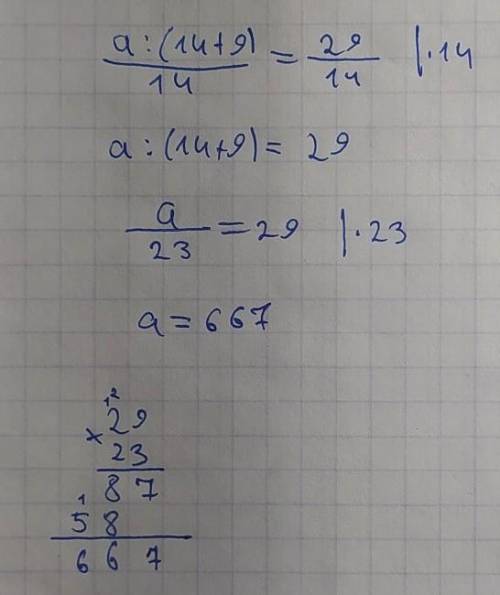 a:(14+9) / 14 = 29 / 14 |·14
a:(14+9) = 29
a / 23 = 29 |·23
a = 667
12
29
× 23
87
1
58
667